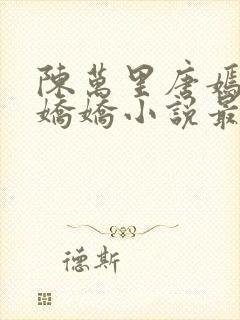 陳萬里唐嫣
嬌嬌小說最
德斯